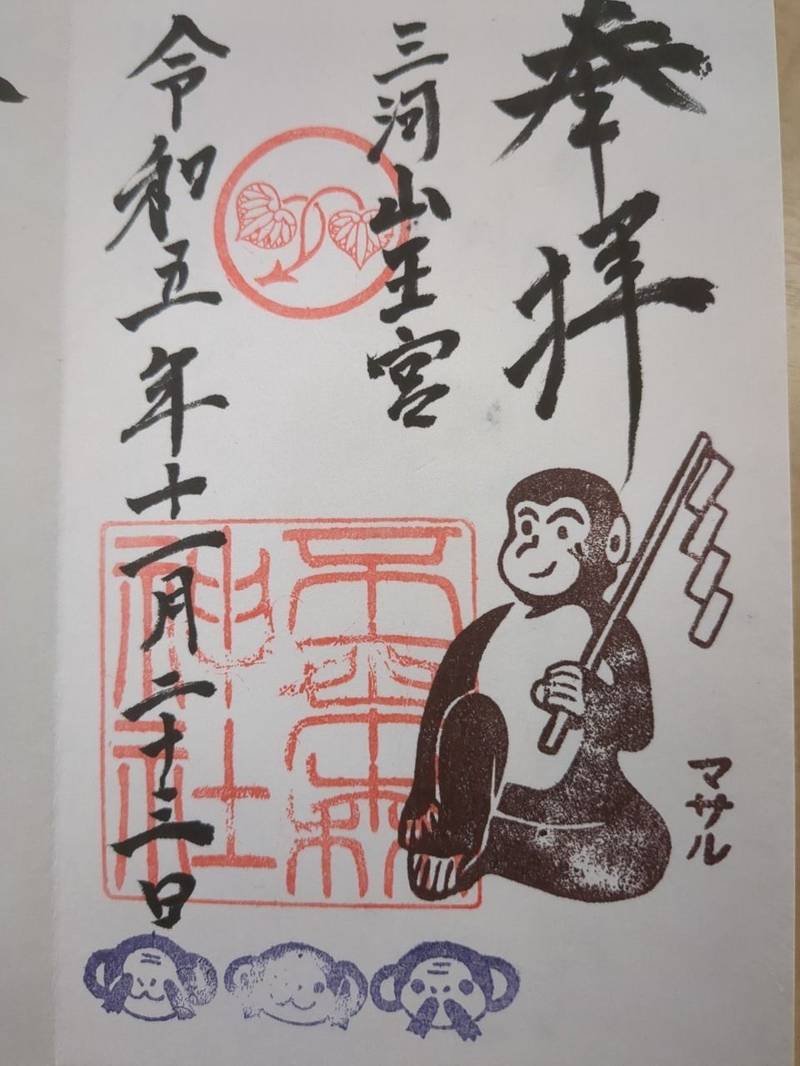 奉拝
三河山王宮
令和五年十一月二十三日
神社
マサル